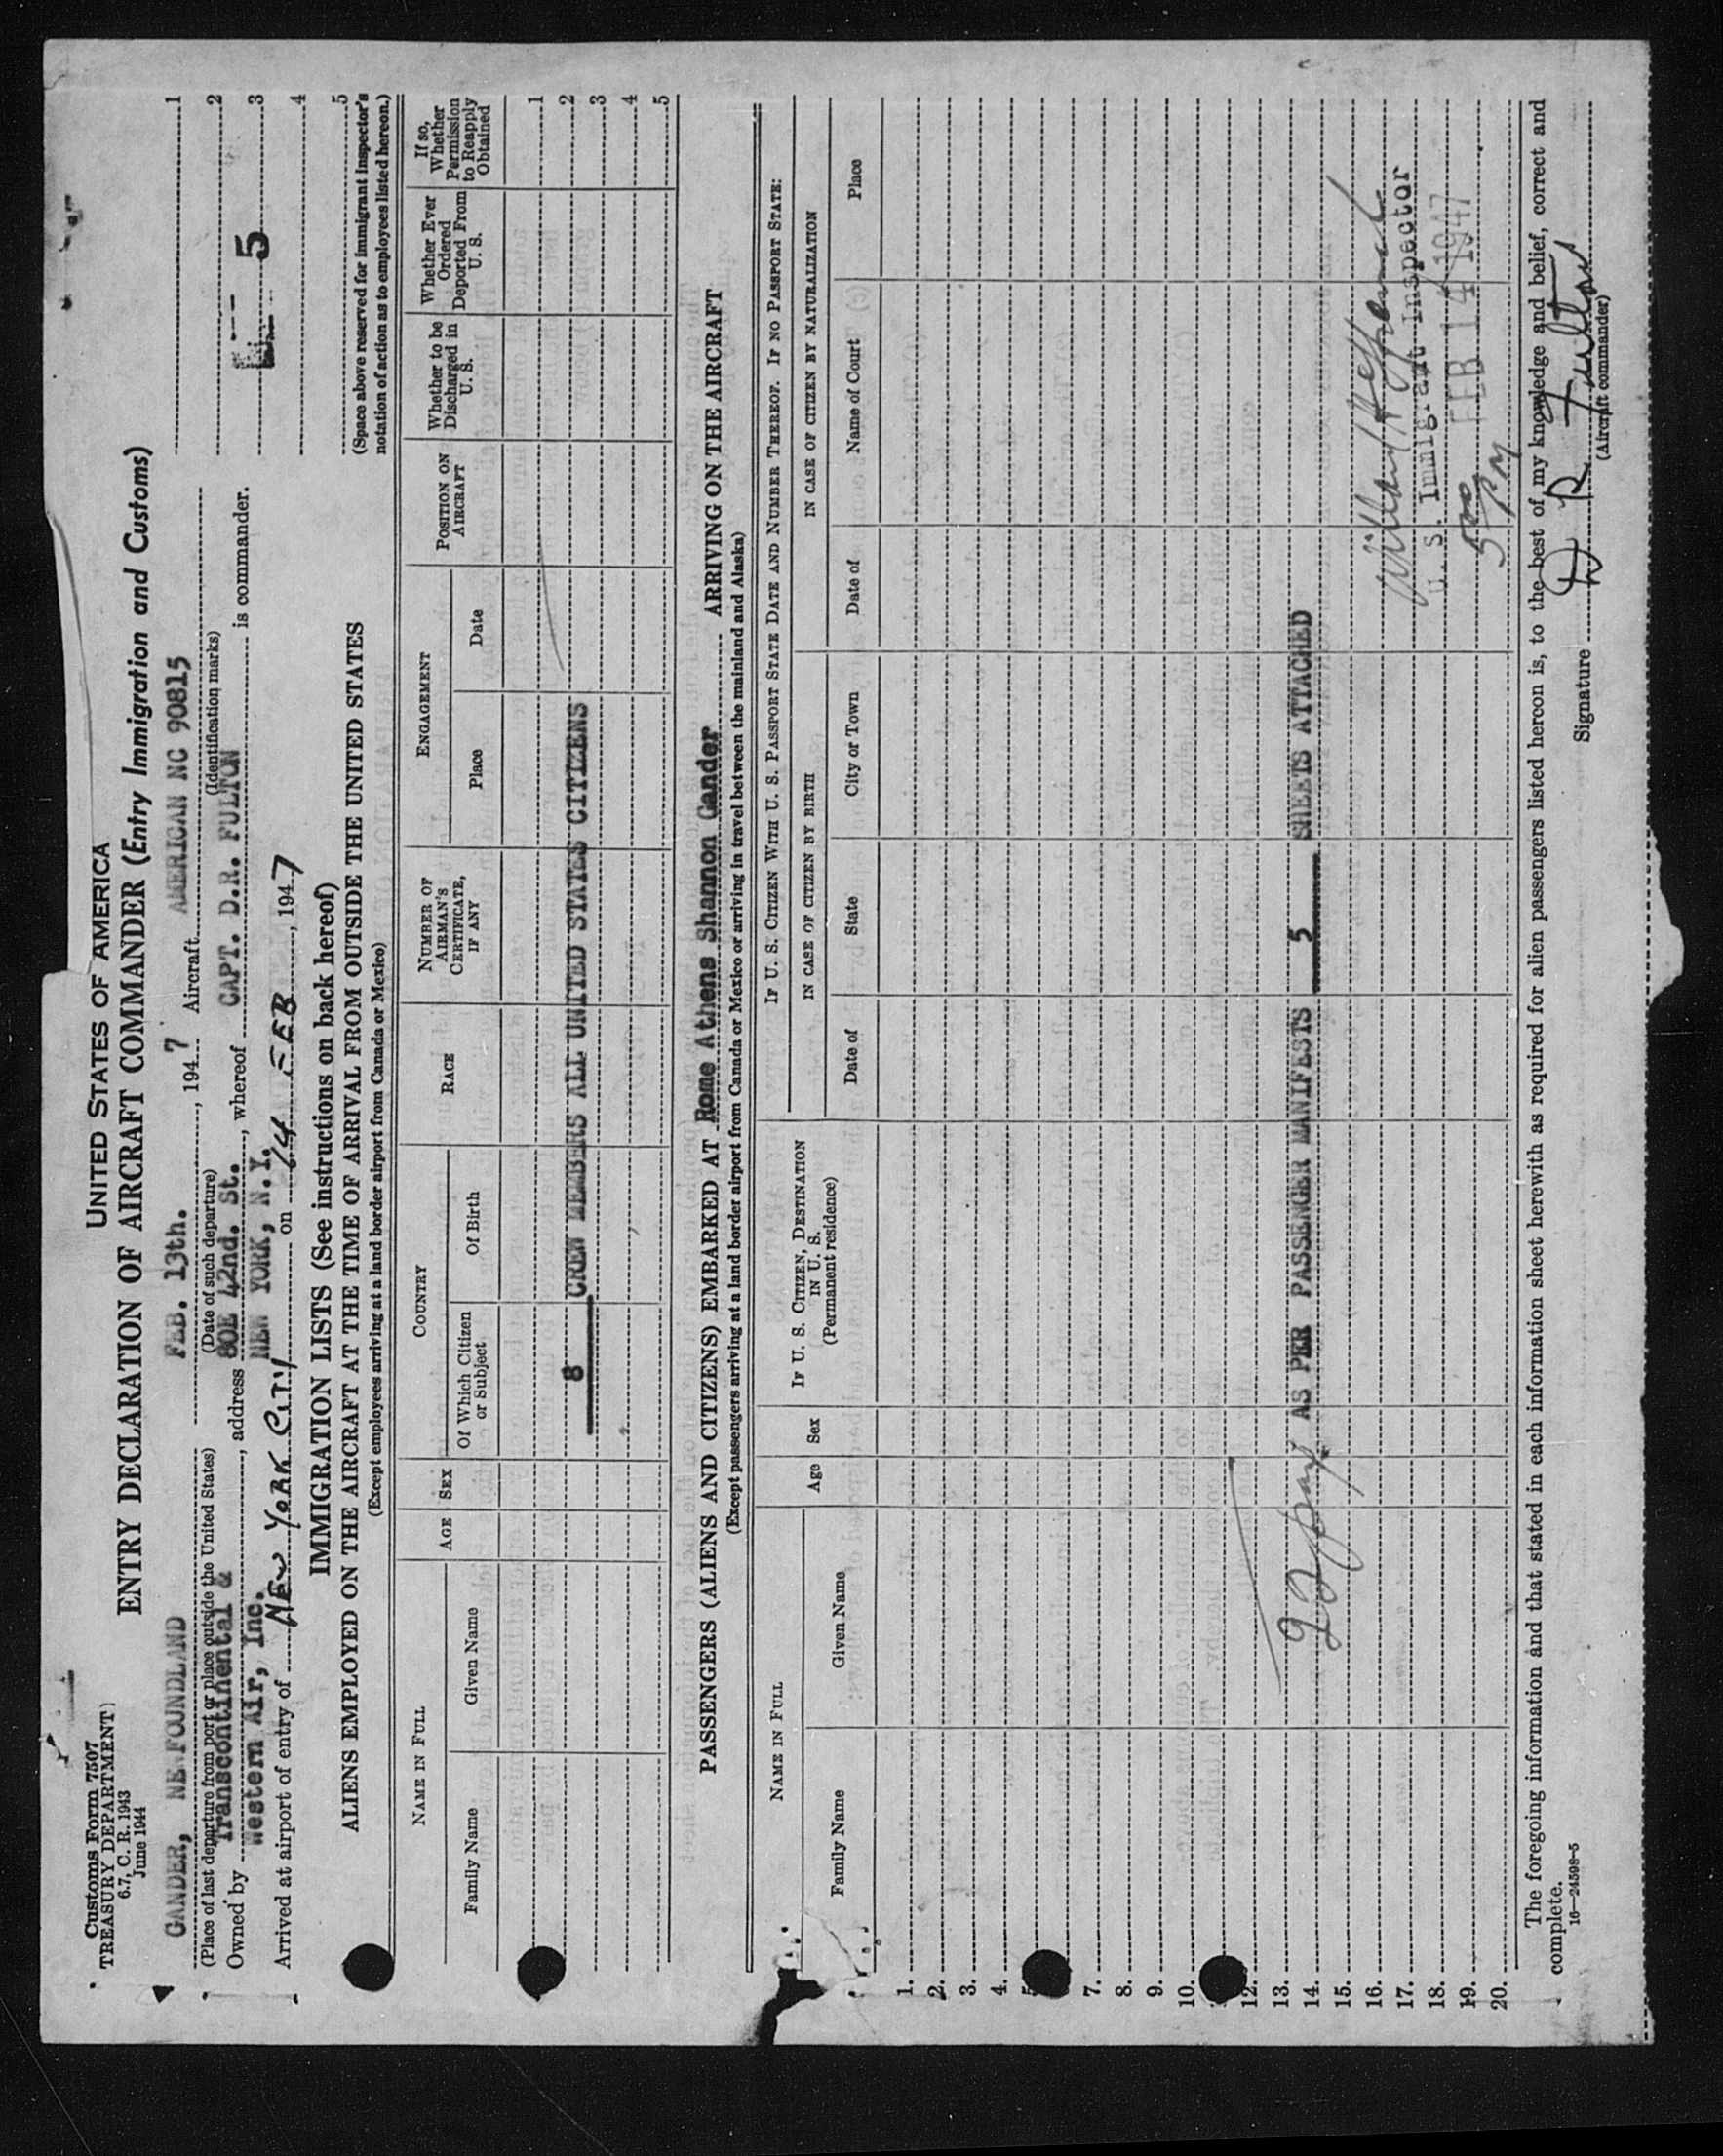 Customs Form 7507
TREASURY DEPARTMENT
6.7, C. R. 1943
June 1944
UNITED STATES OF AMERICA
ENTRY DECLARATION OF AIRCRAFT COMMANDER (Entry Immigration and Customs)
GANDER, NEWFOUNDLAND FEB. 13th. , 1947 Aircraft AMERICAN NC 90815
(Place of last departure from port or place outside the United States) (Date of such departure) (Identification marks)
Owned by Transcontinental & Western Air, Inc. , address 80E 42nd. St. NEW YORK, N.Y. , whereof CAPT. D.R. FULTON is commander.
Arrived at airport of entry of NEW YORK CITY on 14 FEB , 1947
1
2
3
5
4
5
(Space above reserved for immigrant inspector's
notation of action as to employees listed hereon.)
IMMIGRATION LISTS (See instructions on back hereof)
ALIENS EMPLOYED ON THE AIRCRAFT AT THE TIME OF ARRIVAL FROM OUTSIDE THE UNITED STATES
(Except employees arriving at a land border airport from Canada or Mexico)
NAME IN FULL
Family Name
Given Name
AGE
SEX
COUNTRY
Of Which Citizen or Subject
Of Birth
RACE
NUMBER OF AIRMAN'S CERTIFICATE, IF ANY
ENGAGEMENT
Place
Date
POSITION ON AIRCRAFT
Whether to be Discharged in U. S.
Whether Ever Ordered Deported From U. S.
If so, Whether Permission to Reapply Obtained
1
2
8 CREW MEMBERS ALL UNITED STATES CITIZENS
3
4
5
PASSENGERS (ALIENS AND CITIZENS) EMBARKED AT Rome Athens Shannon Gander ARRIVING ON THE AIRCRAFT
(Except passengers arriving at a land border airport from Canada or Mexico or arriving in travel between the mainland and Alaska)
NAME IN FULL
Family Name
Given Name
Age
Sex
IF U. S. CITIZEN, DESTINATION IN U. S.
(Permanent residence)
IF U. S. CITIZEN WITH U. S. PASSPORT STATE DATE AND NUMBER THEREOF. IF NO PASSPORT STATE:
IN CASE OF CITIZEN BY BIRTH
IN CASE OF CITIZEN BY NATURALIZATION
Date of
State
City or Town
Date of
Name of Court
Place
1.
2.
3.
4.
5
7.
8.
9.
10.
12.
13.
14.
AS PER PASSENGER MANIFESTS 5 SHEETS ATTACHED
15.
16.
17.
18.
19.
20.
U. S. Immigrant Inspector
FEB 14 1947
5 00 PM
The foregoing information and that stated in each information sheet herewith as required for alien passengers listed hereon is, to the best of my knowledge and belief, correct and
complete.
16—24598-5
Signature D R Fulton
(Aircraft commander)